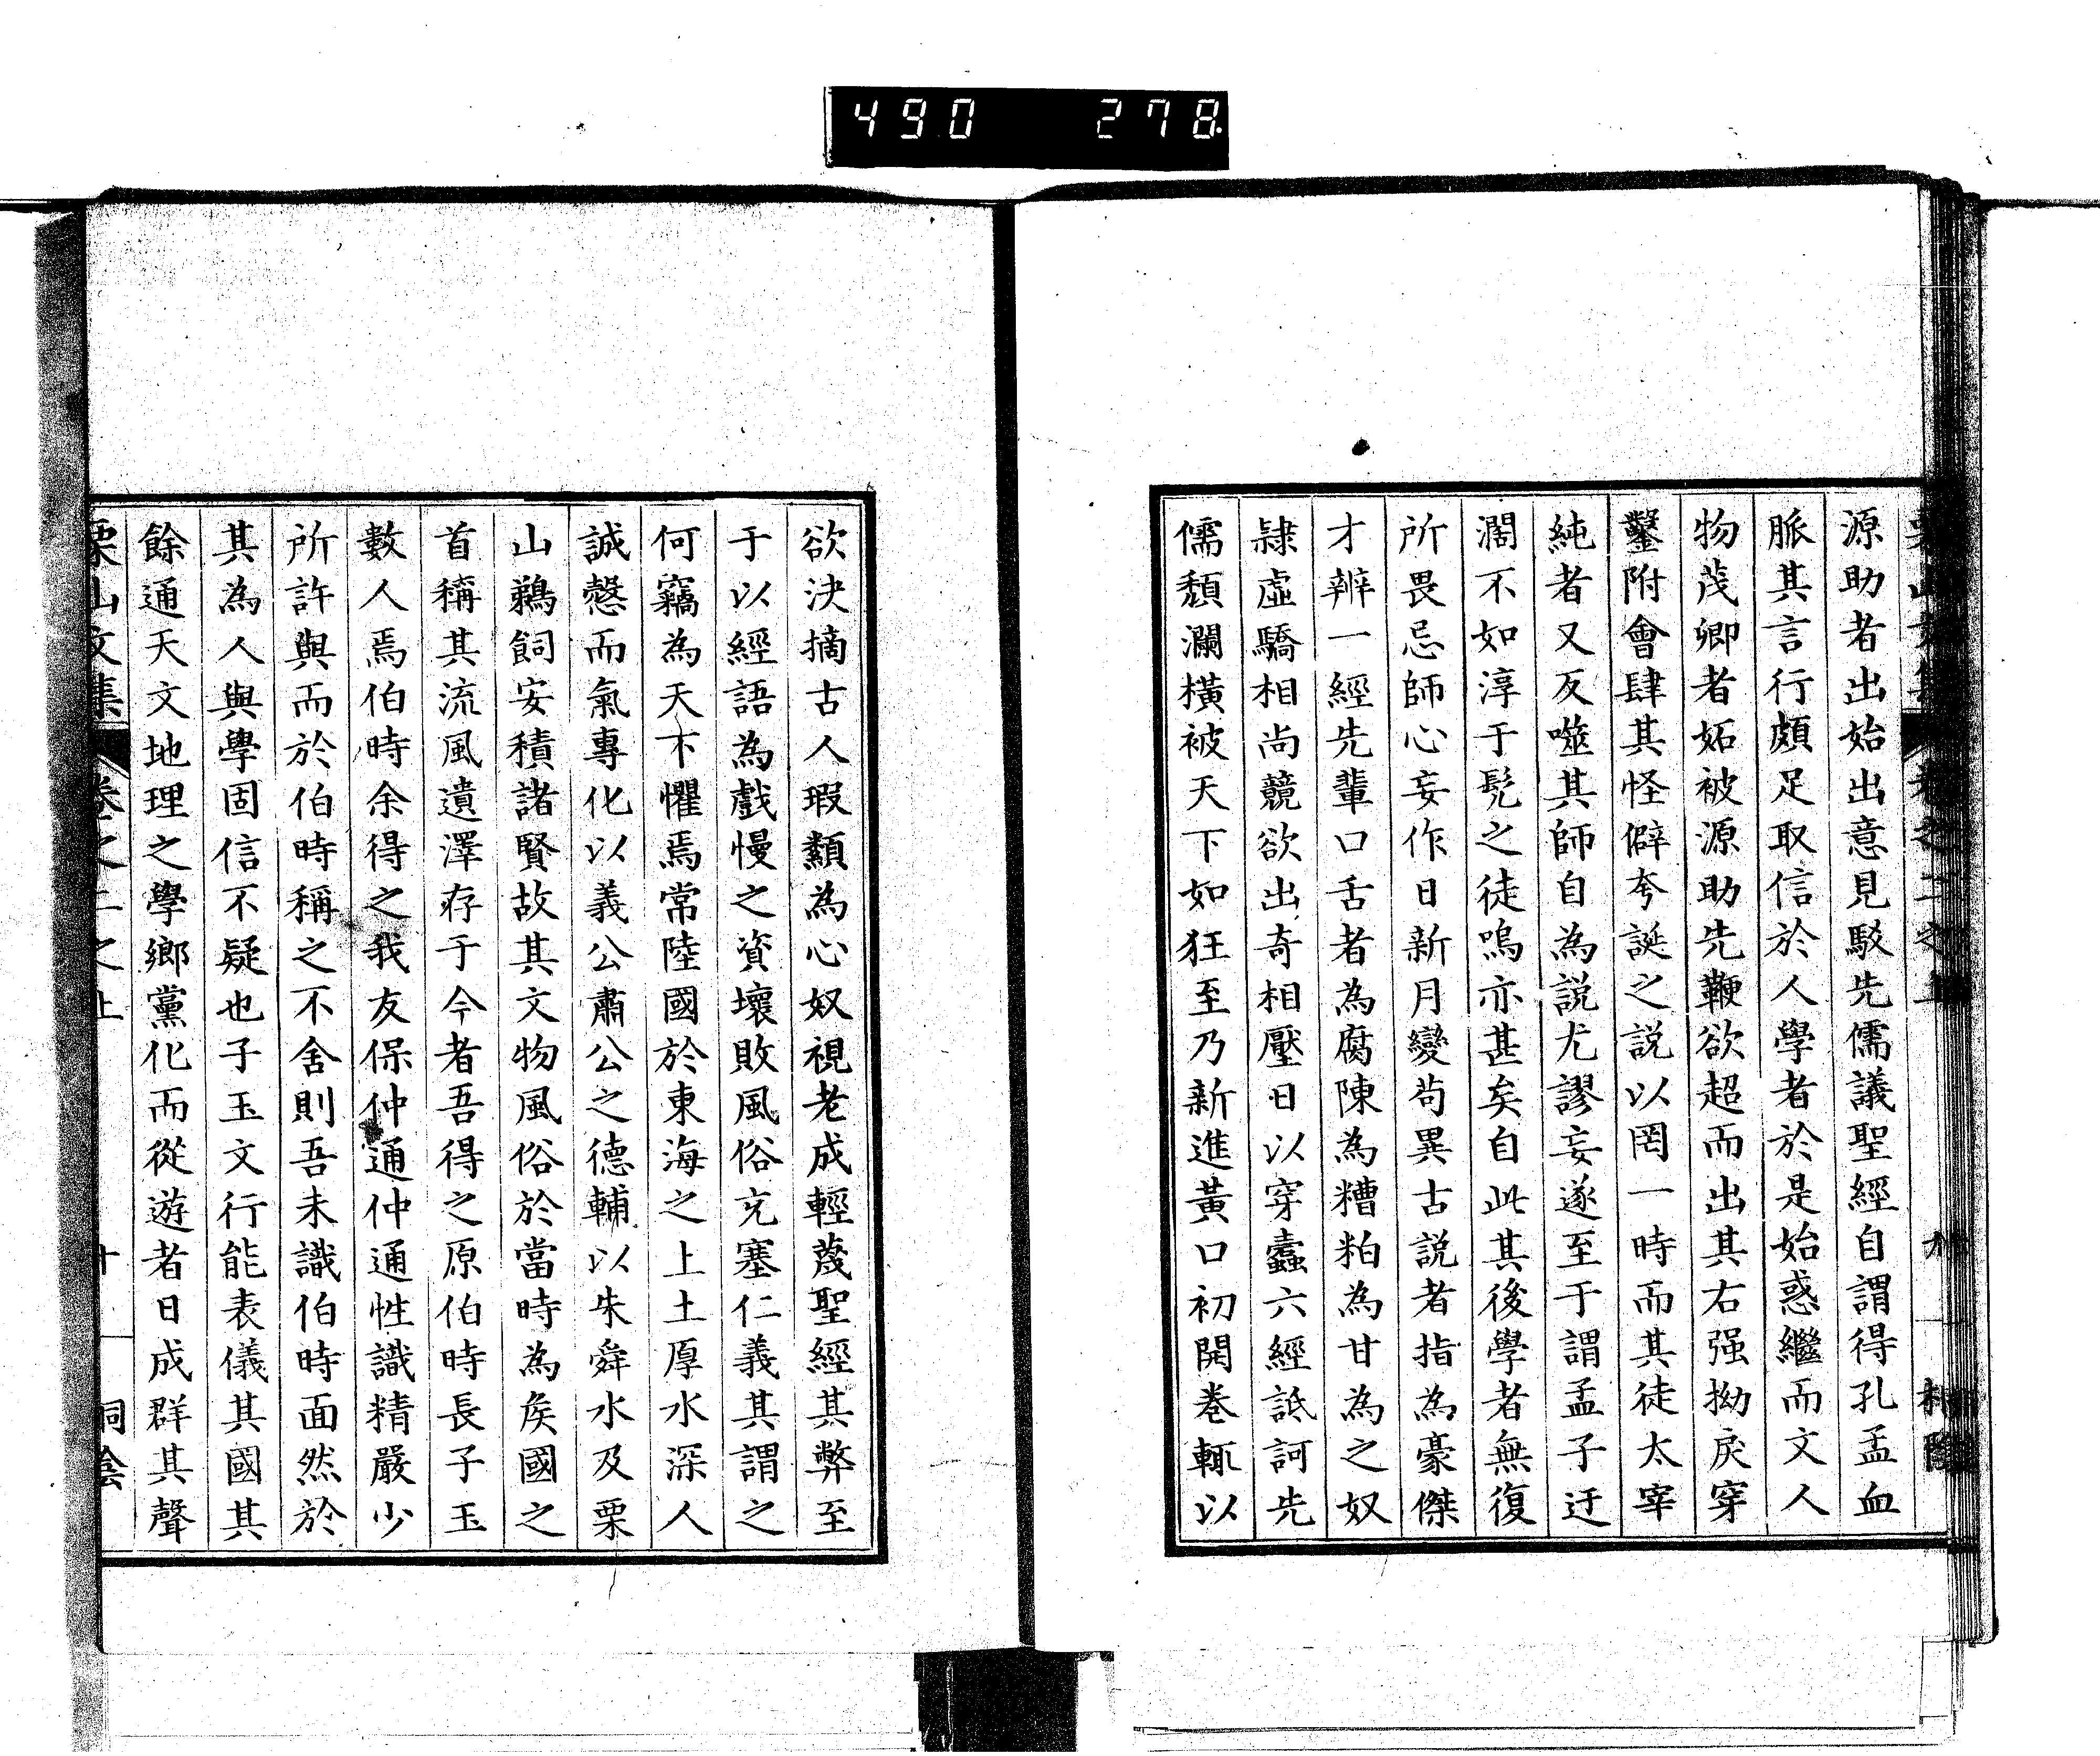 490 278
源助者出始出意見駁先儒議聖經自謂得孔孟血
脈其言行頗足取信於人學者於是始惑繼而文人
物茂卿者妬被源助先鞭欲超而出其右强拗戾穿
鑿附會肆其怪僻夸誕之説以罔一時而其徒太宰
純者又反噬其師自為説尤謬妄遂至于謂孟子迂
濶不如淳于髠之徒嗚亦甚矣自此其後學者無復
所畏忌師心妄作日新月變茍異古説者指為豪傑
才辨一經先輩口舌者為腐陳為糟粕為甘為之奴
隷虛驕相尚競欲出奇相壓日以穿蠹六經詆訶先
儒頹瀾横被天下如狂至乃新進黃口初開巻輒以
欲決摘古人瑕纇為心奴視老成輕蔑聖經其弊至
于以經語為戲慢之資壞敗風俗充塞仁義其謂之
何竊為天下懼焉常陸國於東海之上土厚水深人
誠慤而氣專化以義公肅公之德輔以朱舜水及栗
山鵜飼安積諸賢故其文物風俗於當時為矦國之
首稱其流風遺澤存于今者吾得之原伯時長子玉
數人焉伯時余得之我友保仲通仲通性識精嚴少
所許與而於伯時稱之不舍則吾未識伯時面然於
其為人與學固信不疑也子玉文行能表儀其國其
餘通天文地理之學鄉黨化而從遊者日成群其聲
栗山文集 卷之二之上 十